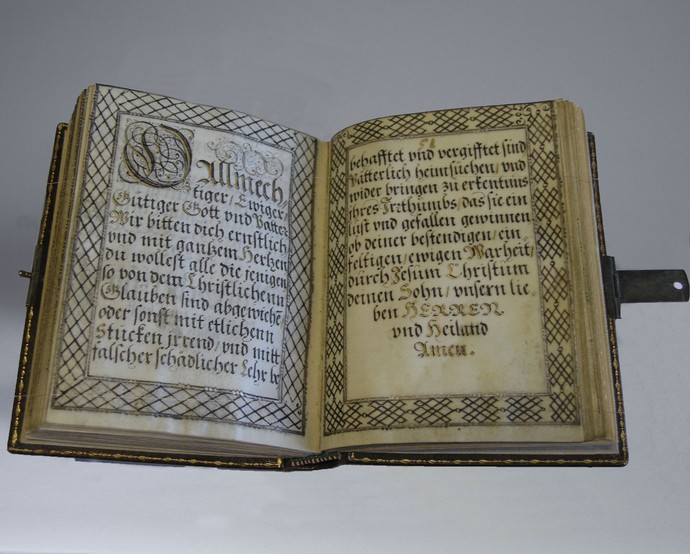 O Allmech,
tiger, Ewiger,
Gütiger Gott vnd Vatter
Wir bitten dich ernstlich
vnd mit gantzem Hertzen
du wollest alle die jenigen
so von dem Christlichenn
Glauben sind abgewichē,
oder sonst mit etlichenn
Stucken jrrend, vnd mitt
falscher schädlicher Lehr be
behafftet vnd vergifftet sind
Vätterlich heimsuchen, vnd
wider bringen zu erkentnus
jhres Irzthumbs, das sie ein
lust vnd gefallen gewinnen
ob deiner bestendigen, ein,
feltigen, ewigen Warheit,
durch Jesum Christum
deinen Sohn, vnsern lie,
ben HERREN
vnd Heiland
Amen.